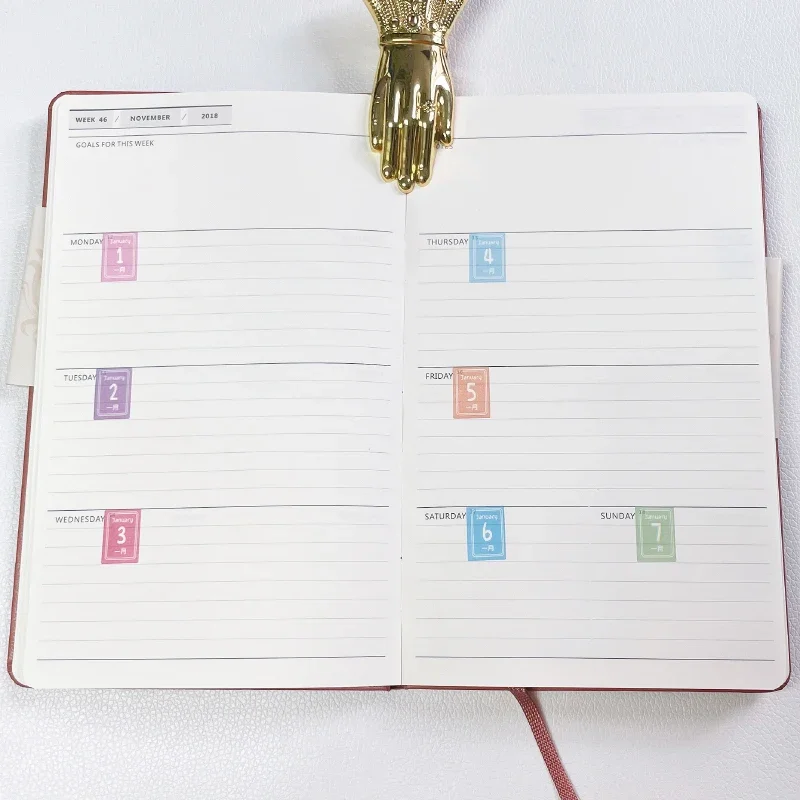 WEEK 46 / NOVEMBER / 2018
GOALS FOR THIS WEEK
MONDAY
January
1
一月
TUESDAY
January
2
一月
WEDNESDAY
January
3
一月
THURSDAY
January
4
一月
FRIDAY
January
5
一月
SATURDAY
January
6
一月
SUNDAY
January
7
一月